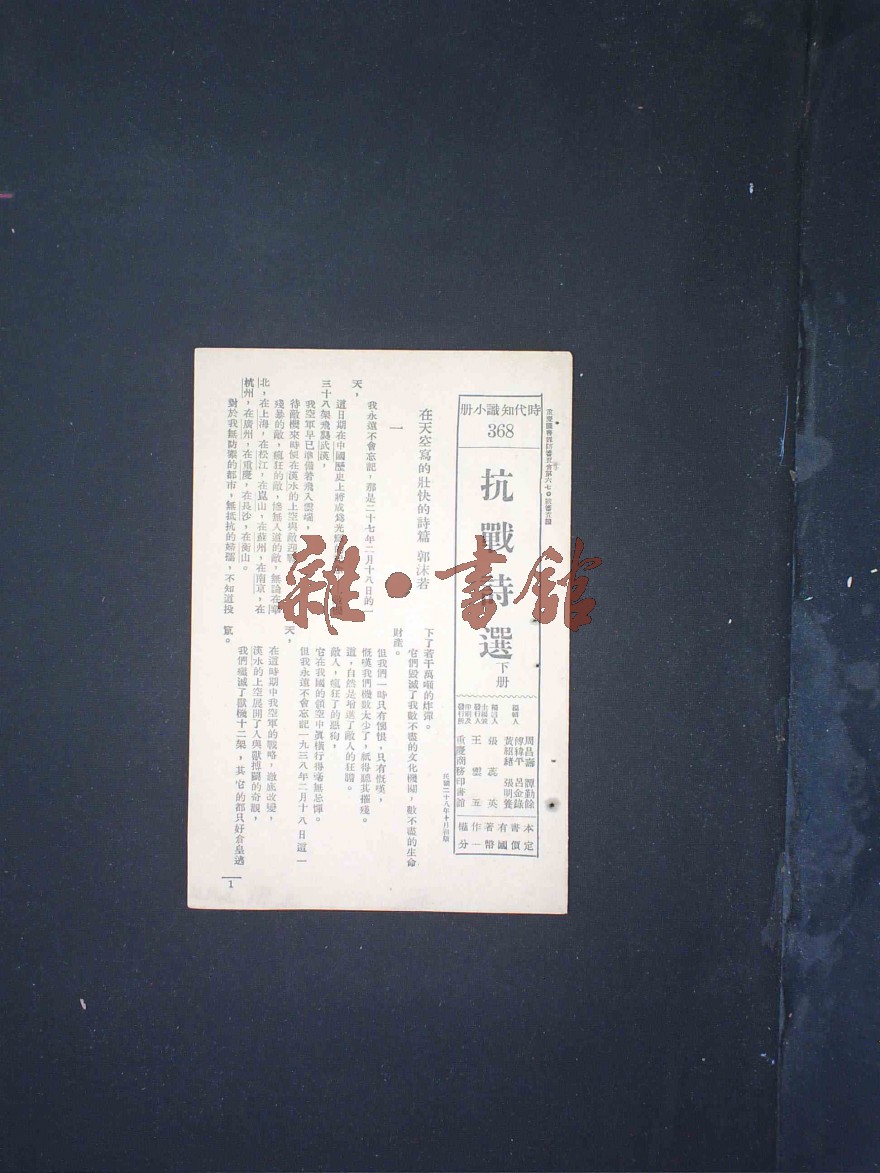 重慶圖書雜誌審查會審六七〇號審查證
時代知識小冊
368
抗戰詩選
下冊
編輯人
周昌壽 譚勤餘
傅緯平 呂金錄
黃紹緒 張明養
張蕊英
發行人 王雲五
印刷及發行所 重慶商務印書館
本書有著作權
定價國幣一分
民國二十八年十月初版
在天空寫的壯快的詩篇 郭沫若
一
我永遠不會忘記,那是二十七年二月十八日的一
天,
這日期在中國歷史上將成為光
三十八架飛襲武漢,
我空軍早已準備着飛入雲端,
待敵機來時便在漢水的上空與敵
殘暴的敵,瘋狂的敵,慘無人道的敵,無論在
北,在上海,在松江,在崑山,在蘇州,在南京,在
杭州,在廣州,在重慶,在長沙,在衡山。
對於我無防禦的都市,無抵抗的婦孺,不知道投
下了若干萬噸的炸彈。
它們毀滅了我數不盡的文化機關,數不盡的生命
財產。
但我們一時只有懊恨,只有慨嘆,
慨嘆我們機數太少了,祇得聽其摧殘。
這,自然是增進了敵人的狂購。
敵人,瘋狂了的惡狗,
它在我國的領空中真橫行得毫無忌憚。
但我永遠不會忘記一九三八年二月十八日這一
天,
在這時期中我空軍的戰略,徹底改變,
漢水的上空展開了人與獸搏鬭的奇觀,
我們殲滅了獸機十二架,其它的都只好倉皇逃
竄。
1
雜·書館